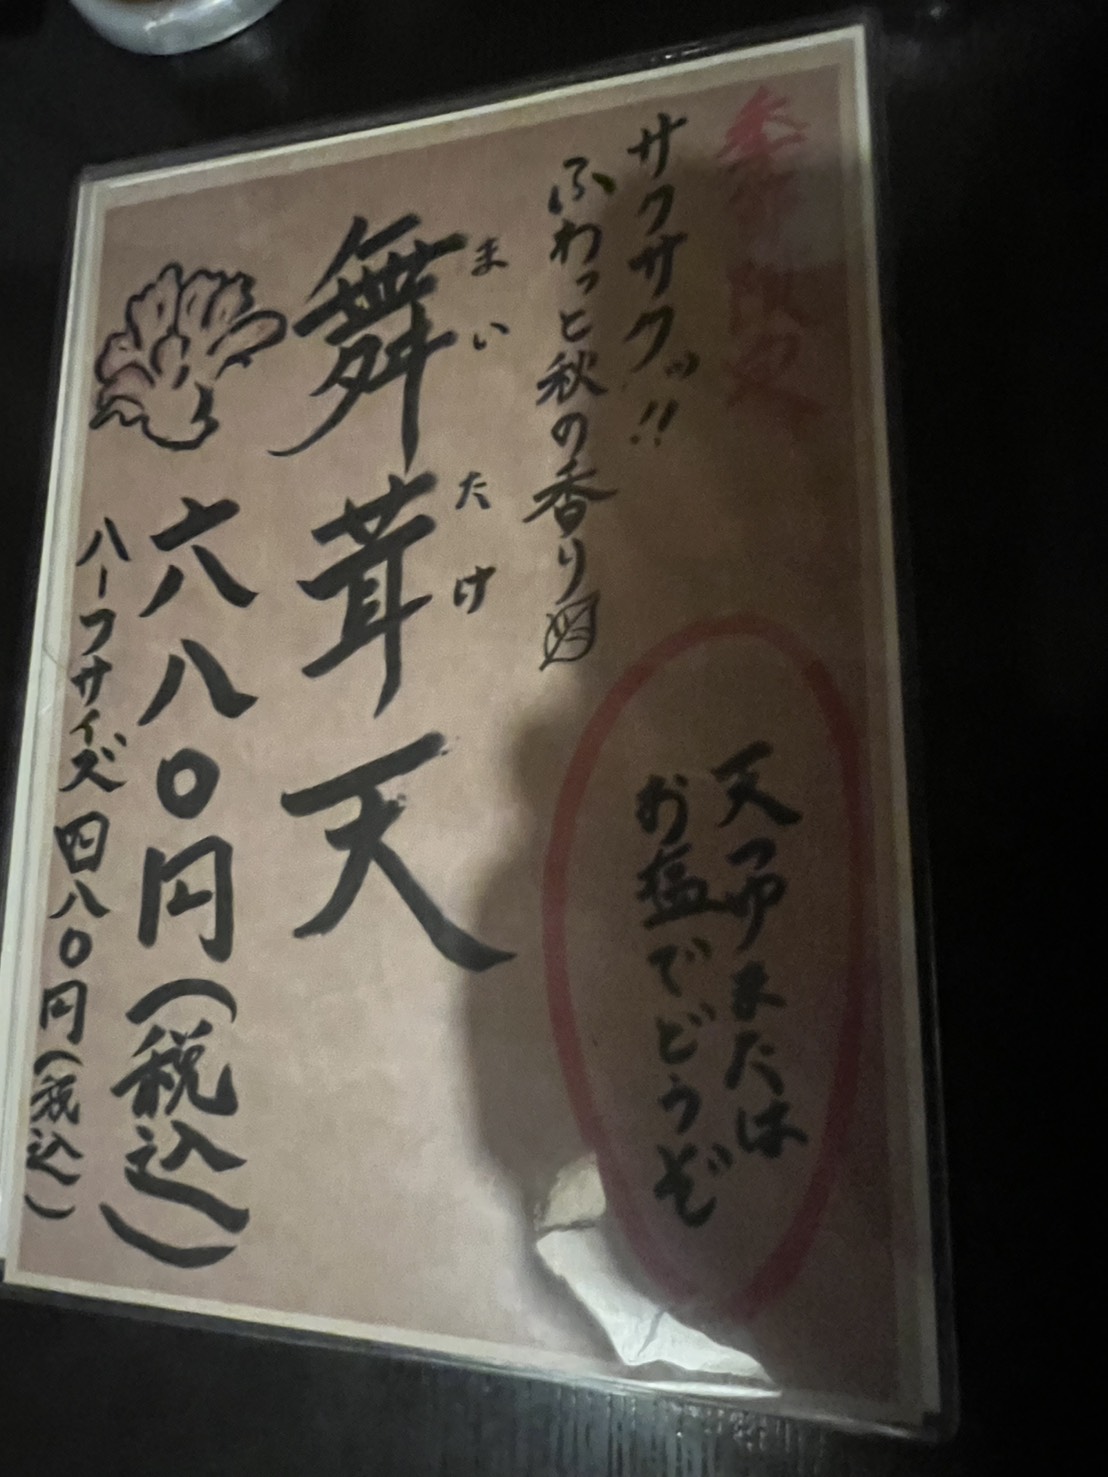 季節限定
サクサクッ!!
ふわっと秋の香り
天つゆまたは
お塩でどうぞ
まいたけ
舞茸天
六八〇円(税込)
ハーフサイズ四八〇円(税込)